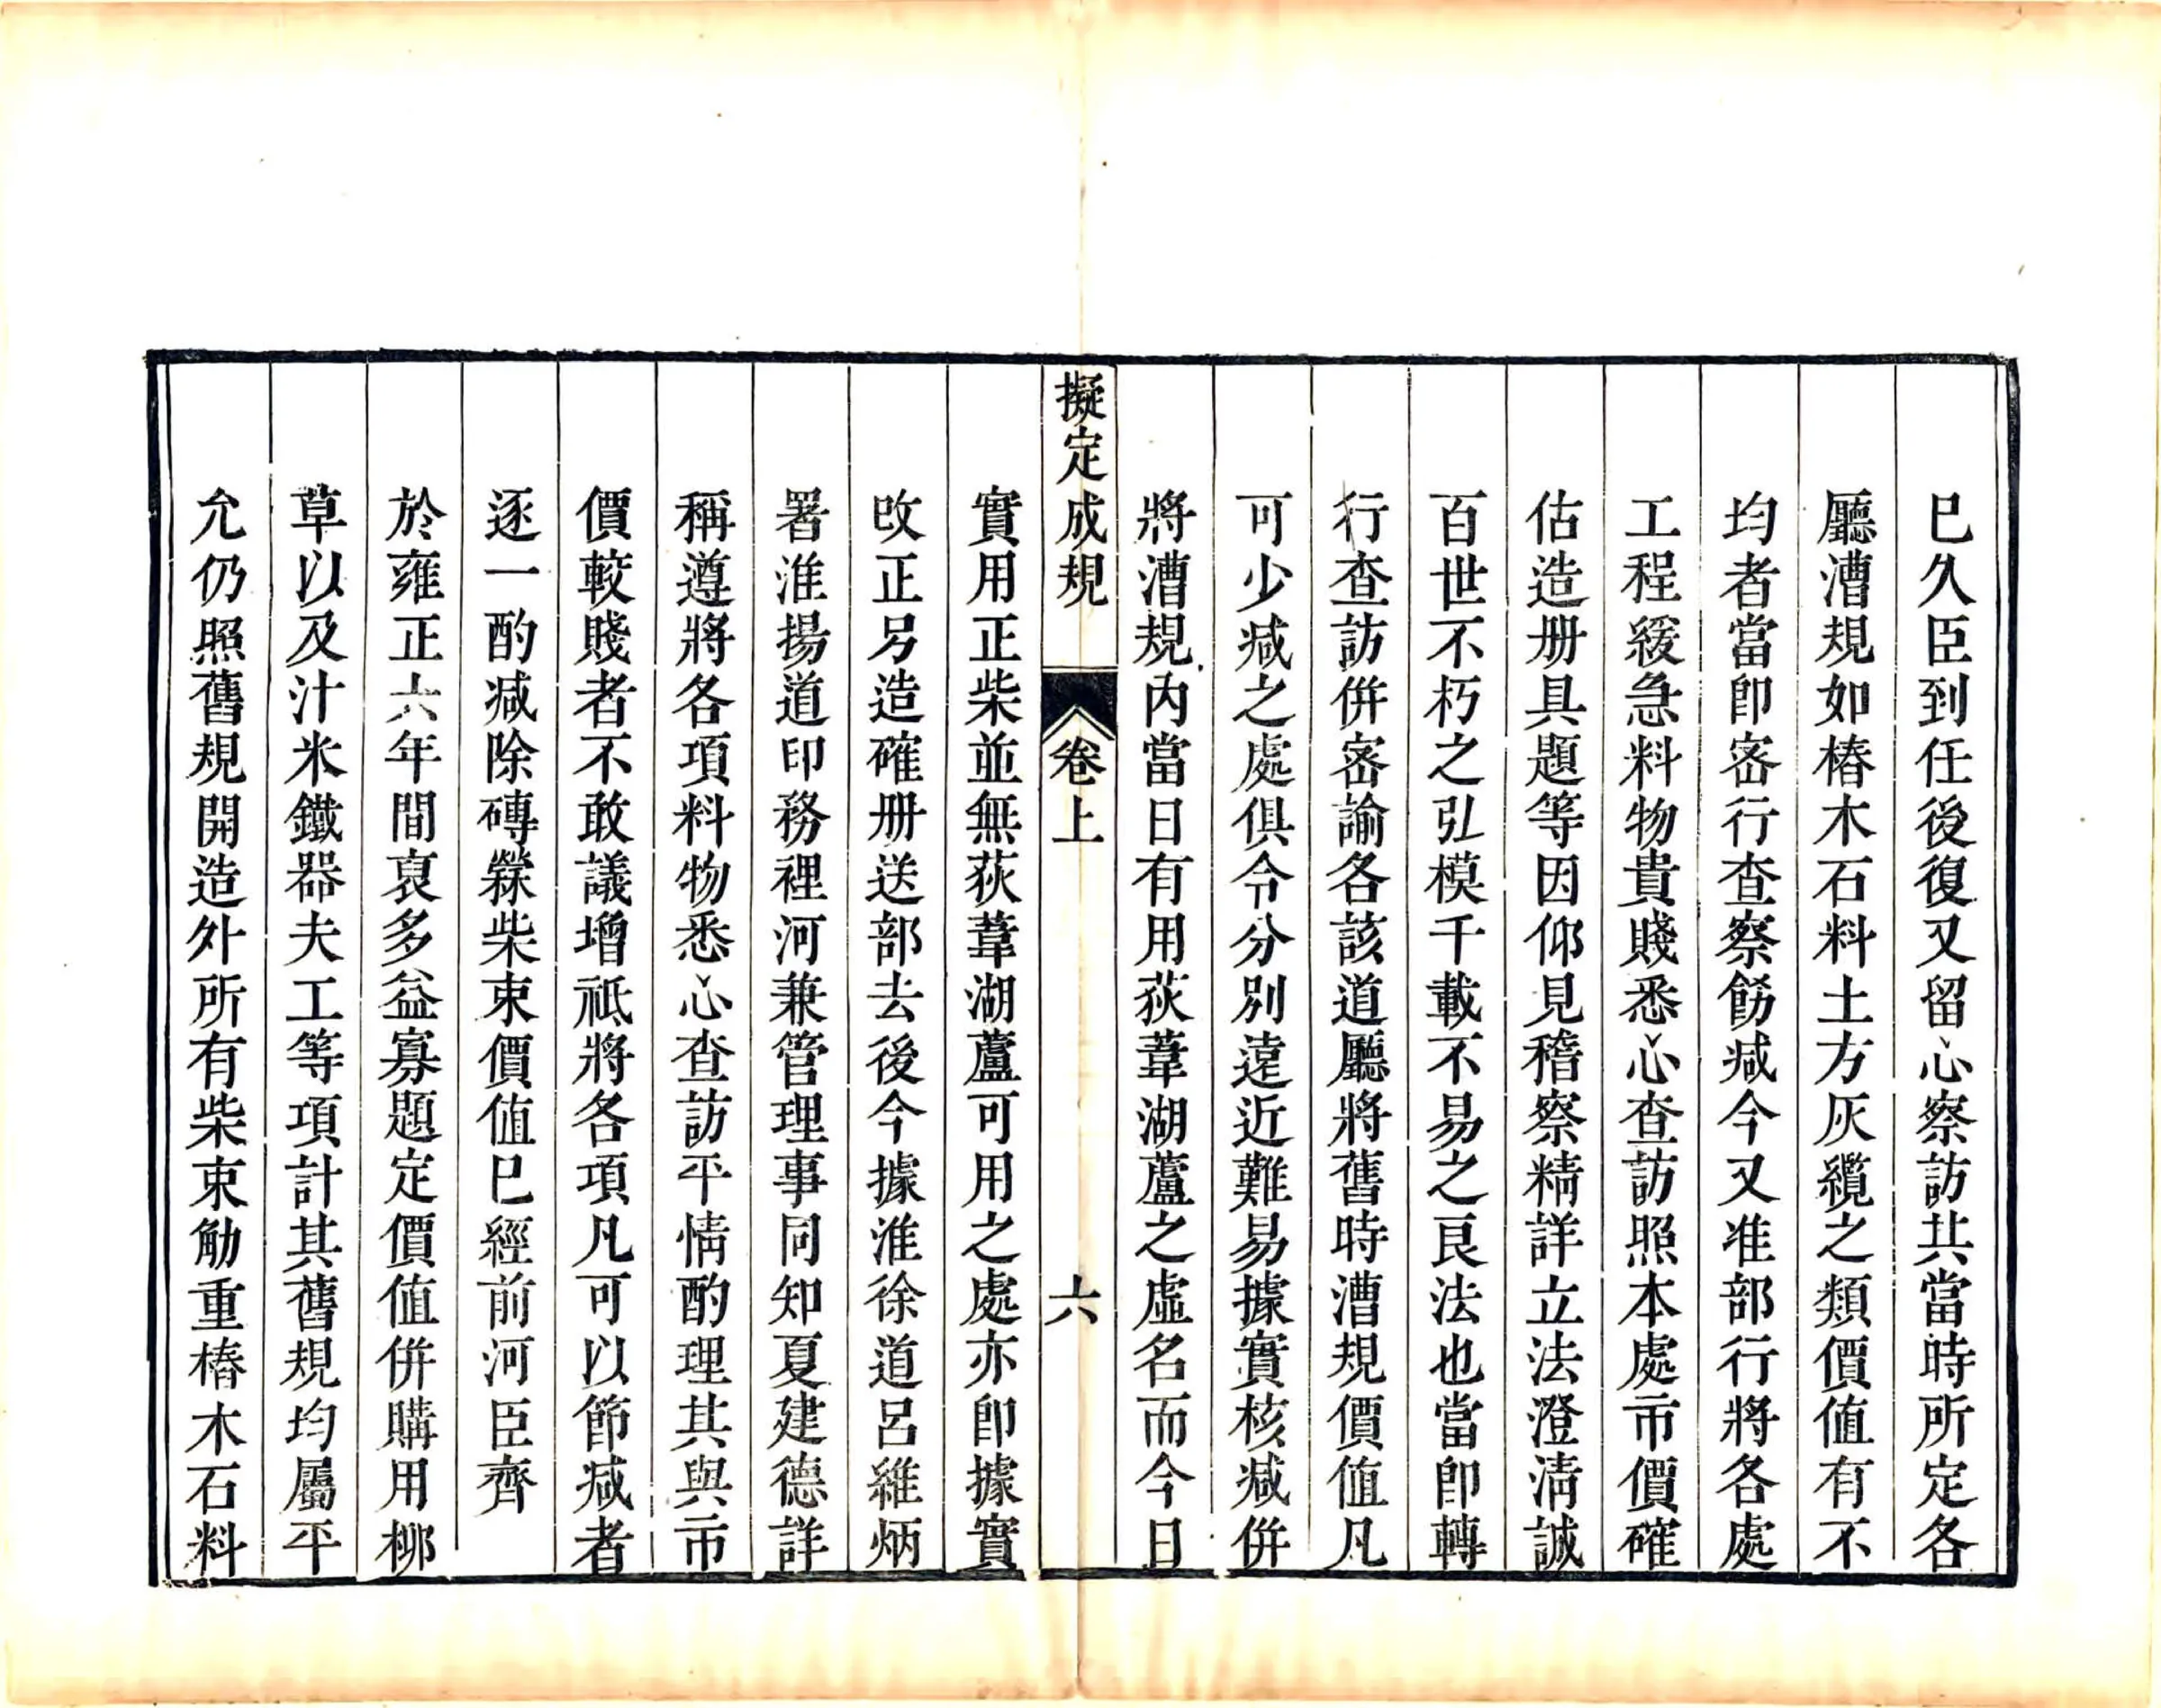 巳久臣到任後復又留心察訪共當時所定各
廳漕規如樁木石料土方灰纜之類價值有不
均者當即宻行查察飭减今又准部行將各處
工程緩急料物貴賤悉心查訪照本處市價確
估造册具題等因仰見稽察精詳立法澄清誠
百世不朽之弘模千載不易之良法也當即轉
行查訪併宻諭各該道廳將舊時漕規價值凡
可少减之處俱令分別遠近難易據實核减併
將漕規內當日有用荻葦湖蘆之虛名而今日
擬定成規
卷上
六
實用正柴並無荻葦湖蘆可用之處亦即據實
改正另造確册送部去後今據淮徐道呂維炳
署淮揚道印務裡河兼管理事同知夏建德詳
稱遵將各項料物悉心查訪平情酌理其與市
價較賤者不敢議增祗將各項凡可以節减者
逐一酌减除磚檾柴束價值巳經前河臣齊
於雍正六年間裒多益寡題定價值併購用柳
草以及汁米鐵器夫工等項計其舊規均屬平
允仍照舊規開造外所有柴束觔重樁木石料